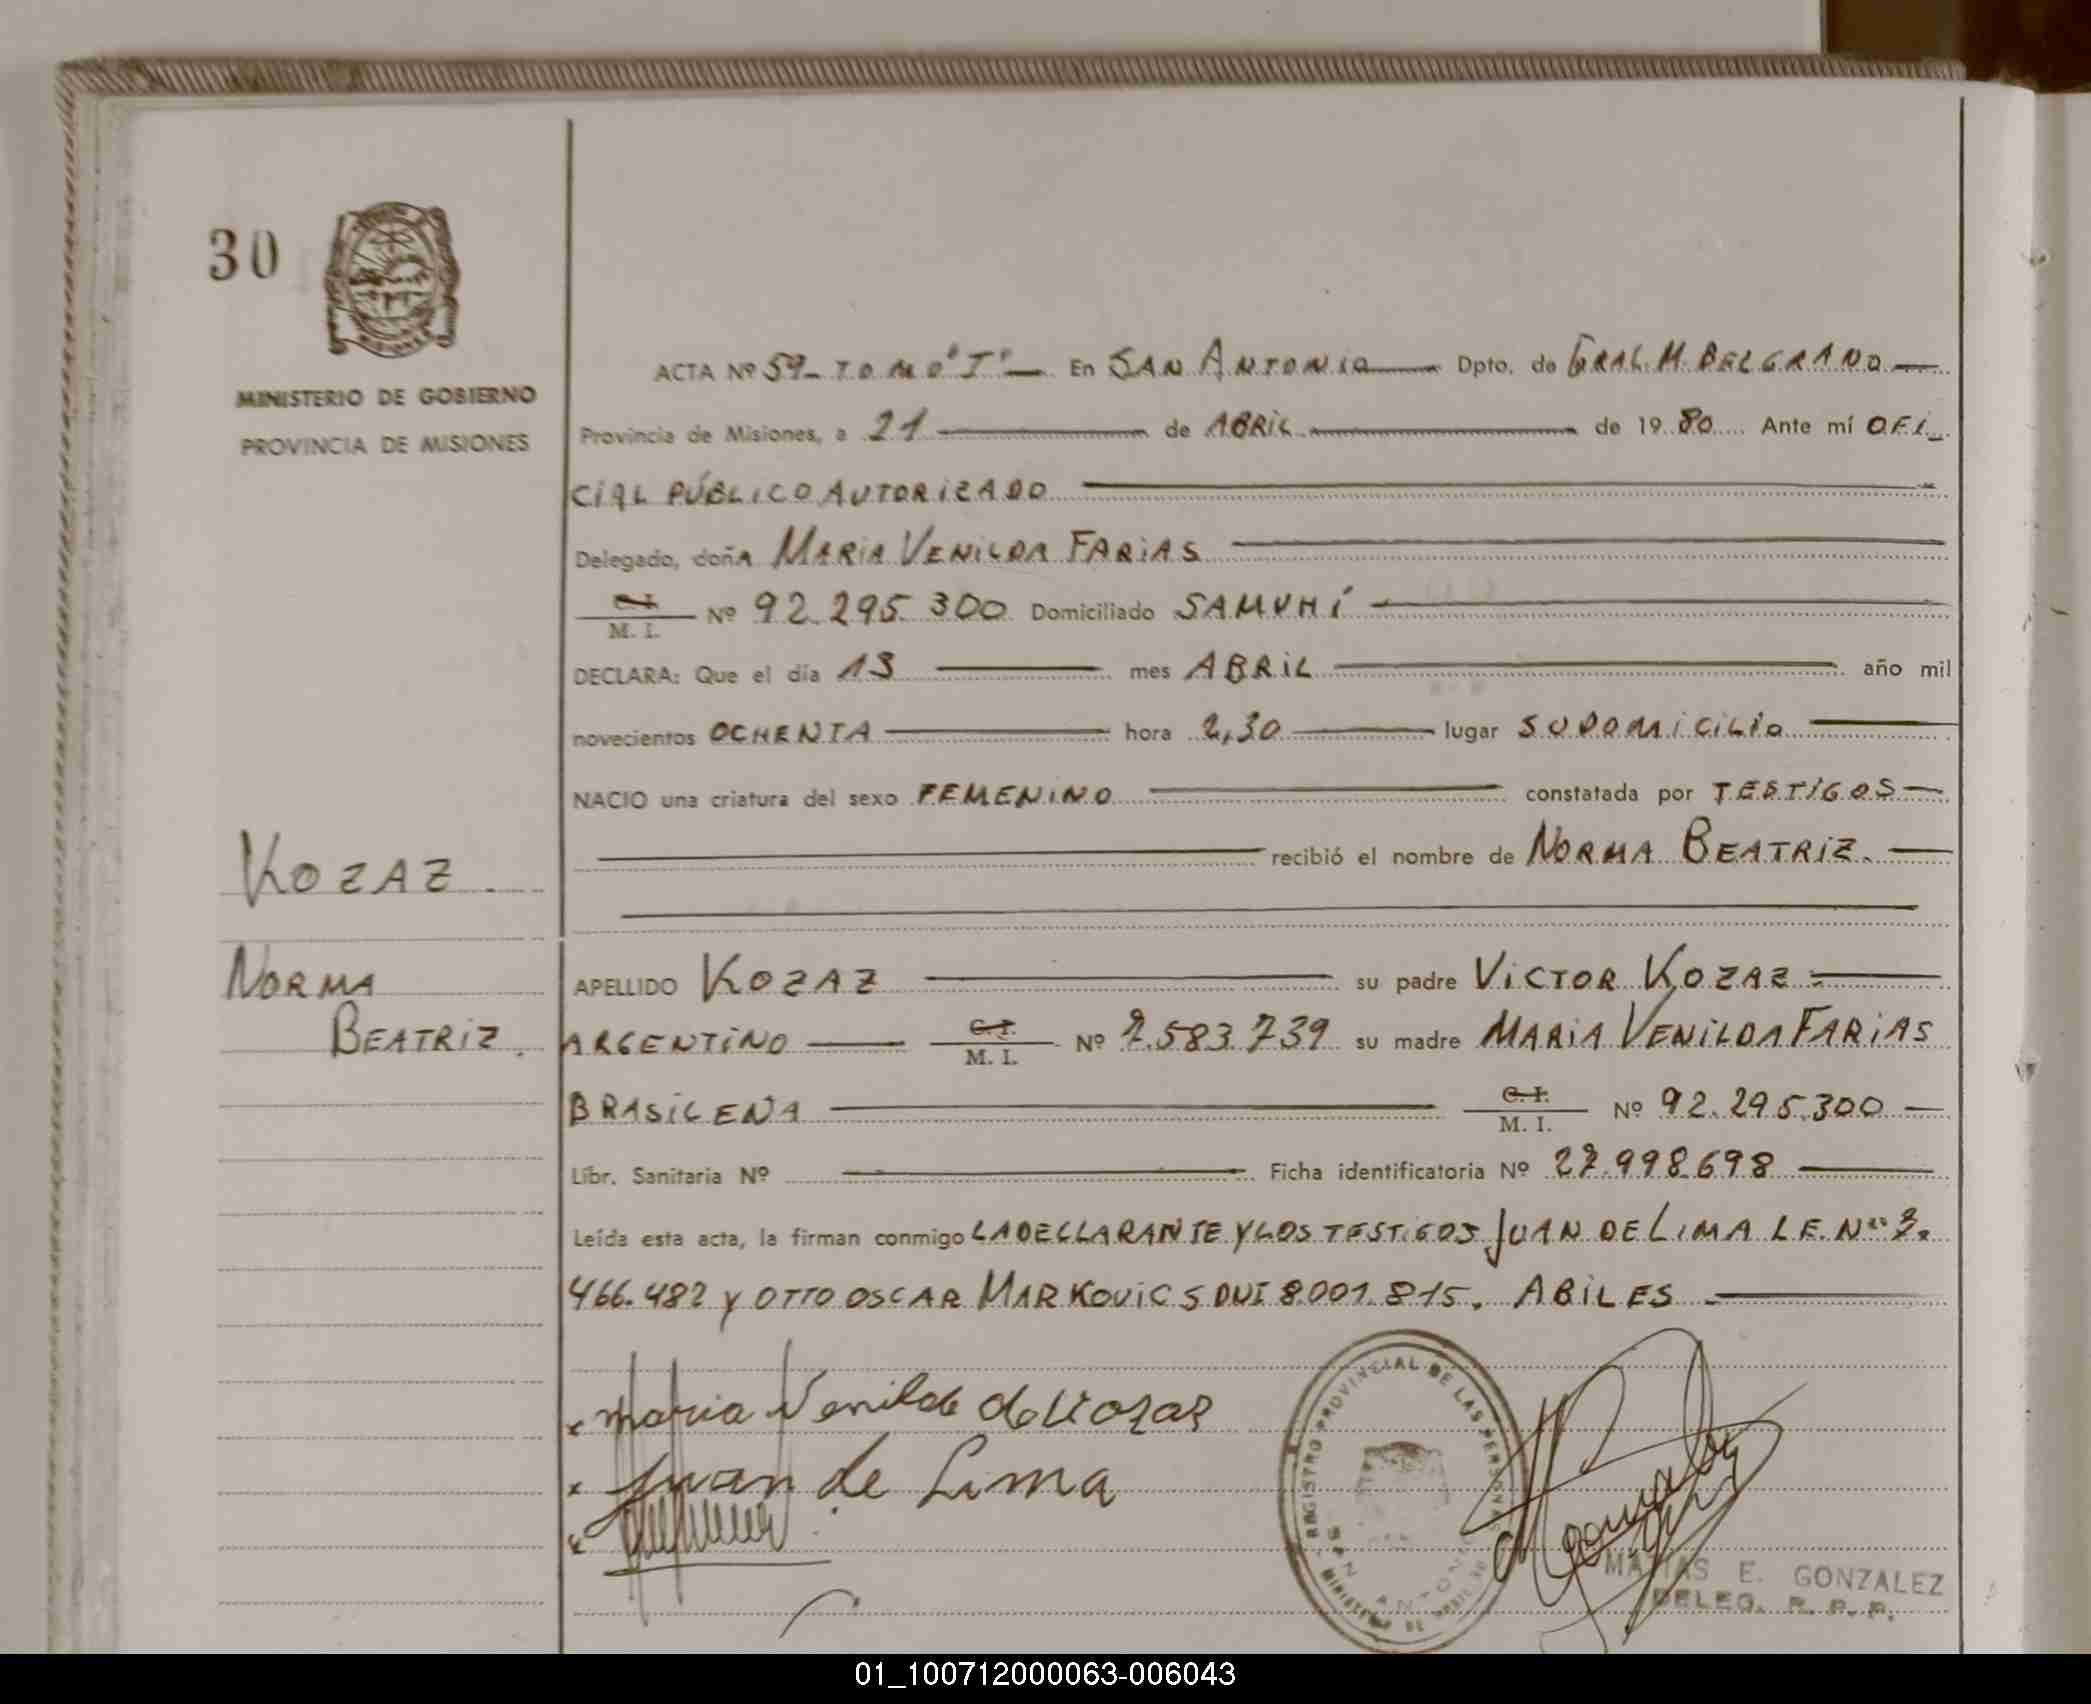 30
MINISTERIO DE GOBIERNO
PROVINCIA DE MISIONES
ACTA Nº 59- TOMO "I" En SAN ANTONIO Dpto. de GRAL. M. BELGRANO
Provincia de Misiones, a 21 de ABRIL de 19 80 Ante mí OFI
CIAL PÚBLICO AUTORIZADO
Delegado, doñA MARIA VENILDA FARIAS
C. I.
M. I. Nº 92.295.300 Domiciliado SAMUHÍ
DECLARA: Que el día 13 mes ABRIL año mil
novecientos OCHENTA hora 2,30 lugar SU DOMICILIO
NACIO una criatura del sexo FEMENINO constatada por TESTIGOS
recibió el nombre de NORMA BEATRIZ.
KOZAZ
NORMA
BEATRIZ.
APELLIDO KOZAZ su padre VICTOR KOZAZ
ARGENTINO C. I. M. I. Nº 7.583.739 su madre MARIA VENILDA FARIAS
BRASILEÑA C. I. M. I. Nº 92.295.300
Libr. Sanitaria Nº Ficha identificatoria Nº 27.998.698
Leída esta acta, la firman conmigo LA DECLARANTE Y LOS TESTIGOS JUAN DE LIMA L.E. Nº 3.
466.482 y OTTO OSCAR MARKOVICS DNI 8.001.815. ABILES
Maria Venilda de Kozaz
Juan de Lima
REGISTRO PROVINCIAL DE LAS PERSONAS
SAN ANTONIO
MATIAS E. GONZALEZ
DELEG. R. P. P.
01_100712000063-006043